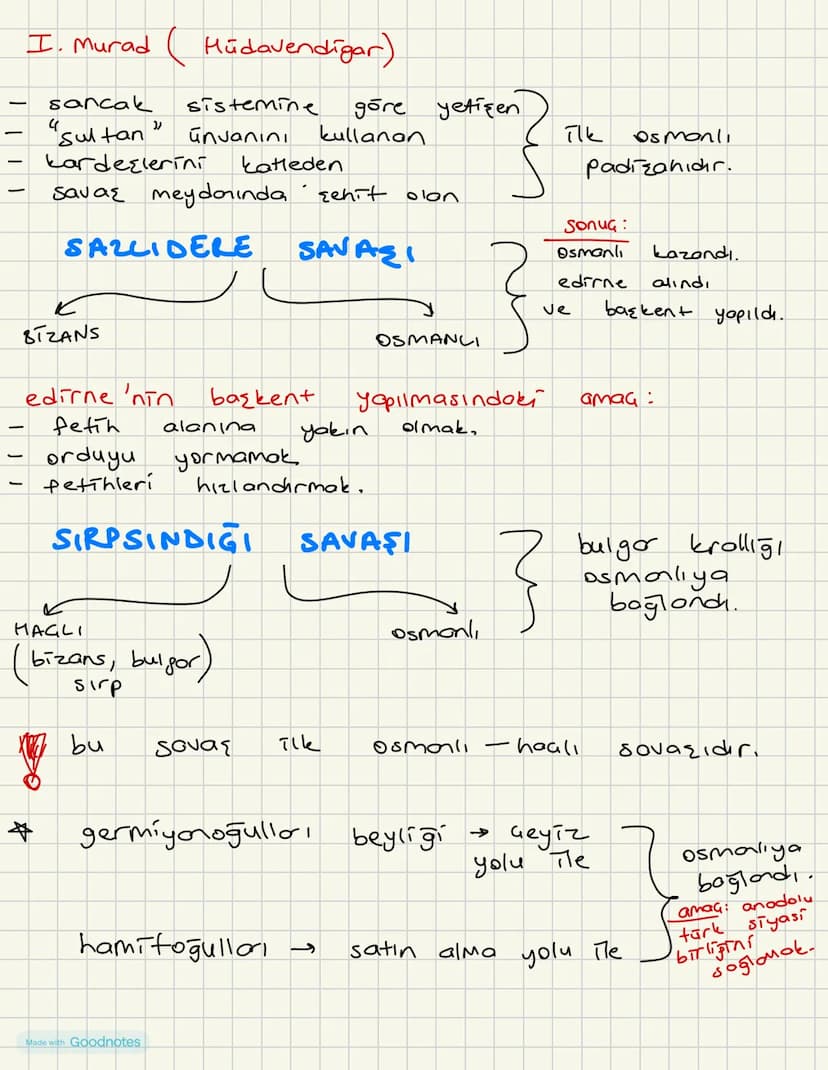 I. Murad ( Hüdavendigar)
- sancak sistemine göre yetişen
- "sultan" ünvanını kullanan
- kardeşlerini katleden
- savaş meydanında şehit olan
ilk osmanlı
padişahıdır.
SAZLIDERE SAVAŞI
BİZANS
OSMANLI
sonuç:
osmanlı kazandı.
edirne alındı
ve başkent yapıldı.
edirne'nin başkent yapılmasındaki amaç:
- fetih alanına yakın olmak,
- orduyu yormamak,
- fetihleri hızlandırmak.
SIRPSINDIĞI SAVAŞI
HAÇLI
(bizans, bulgar)
sırp
osmanlı
bulgar krallığı
osmanlıya
bağlandı.
bu savaş ilk osmanlı - haçlı savaşıdır.
germiyanoğulları beyliği → çeyiz
yolu ile
hamitoğulları → satın alma yolu ile
osmanlıya
bağlandı.
amaç: anadolu
türk siyasi
birliğini
sağlamak.
Made with Goodnotes